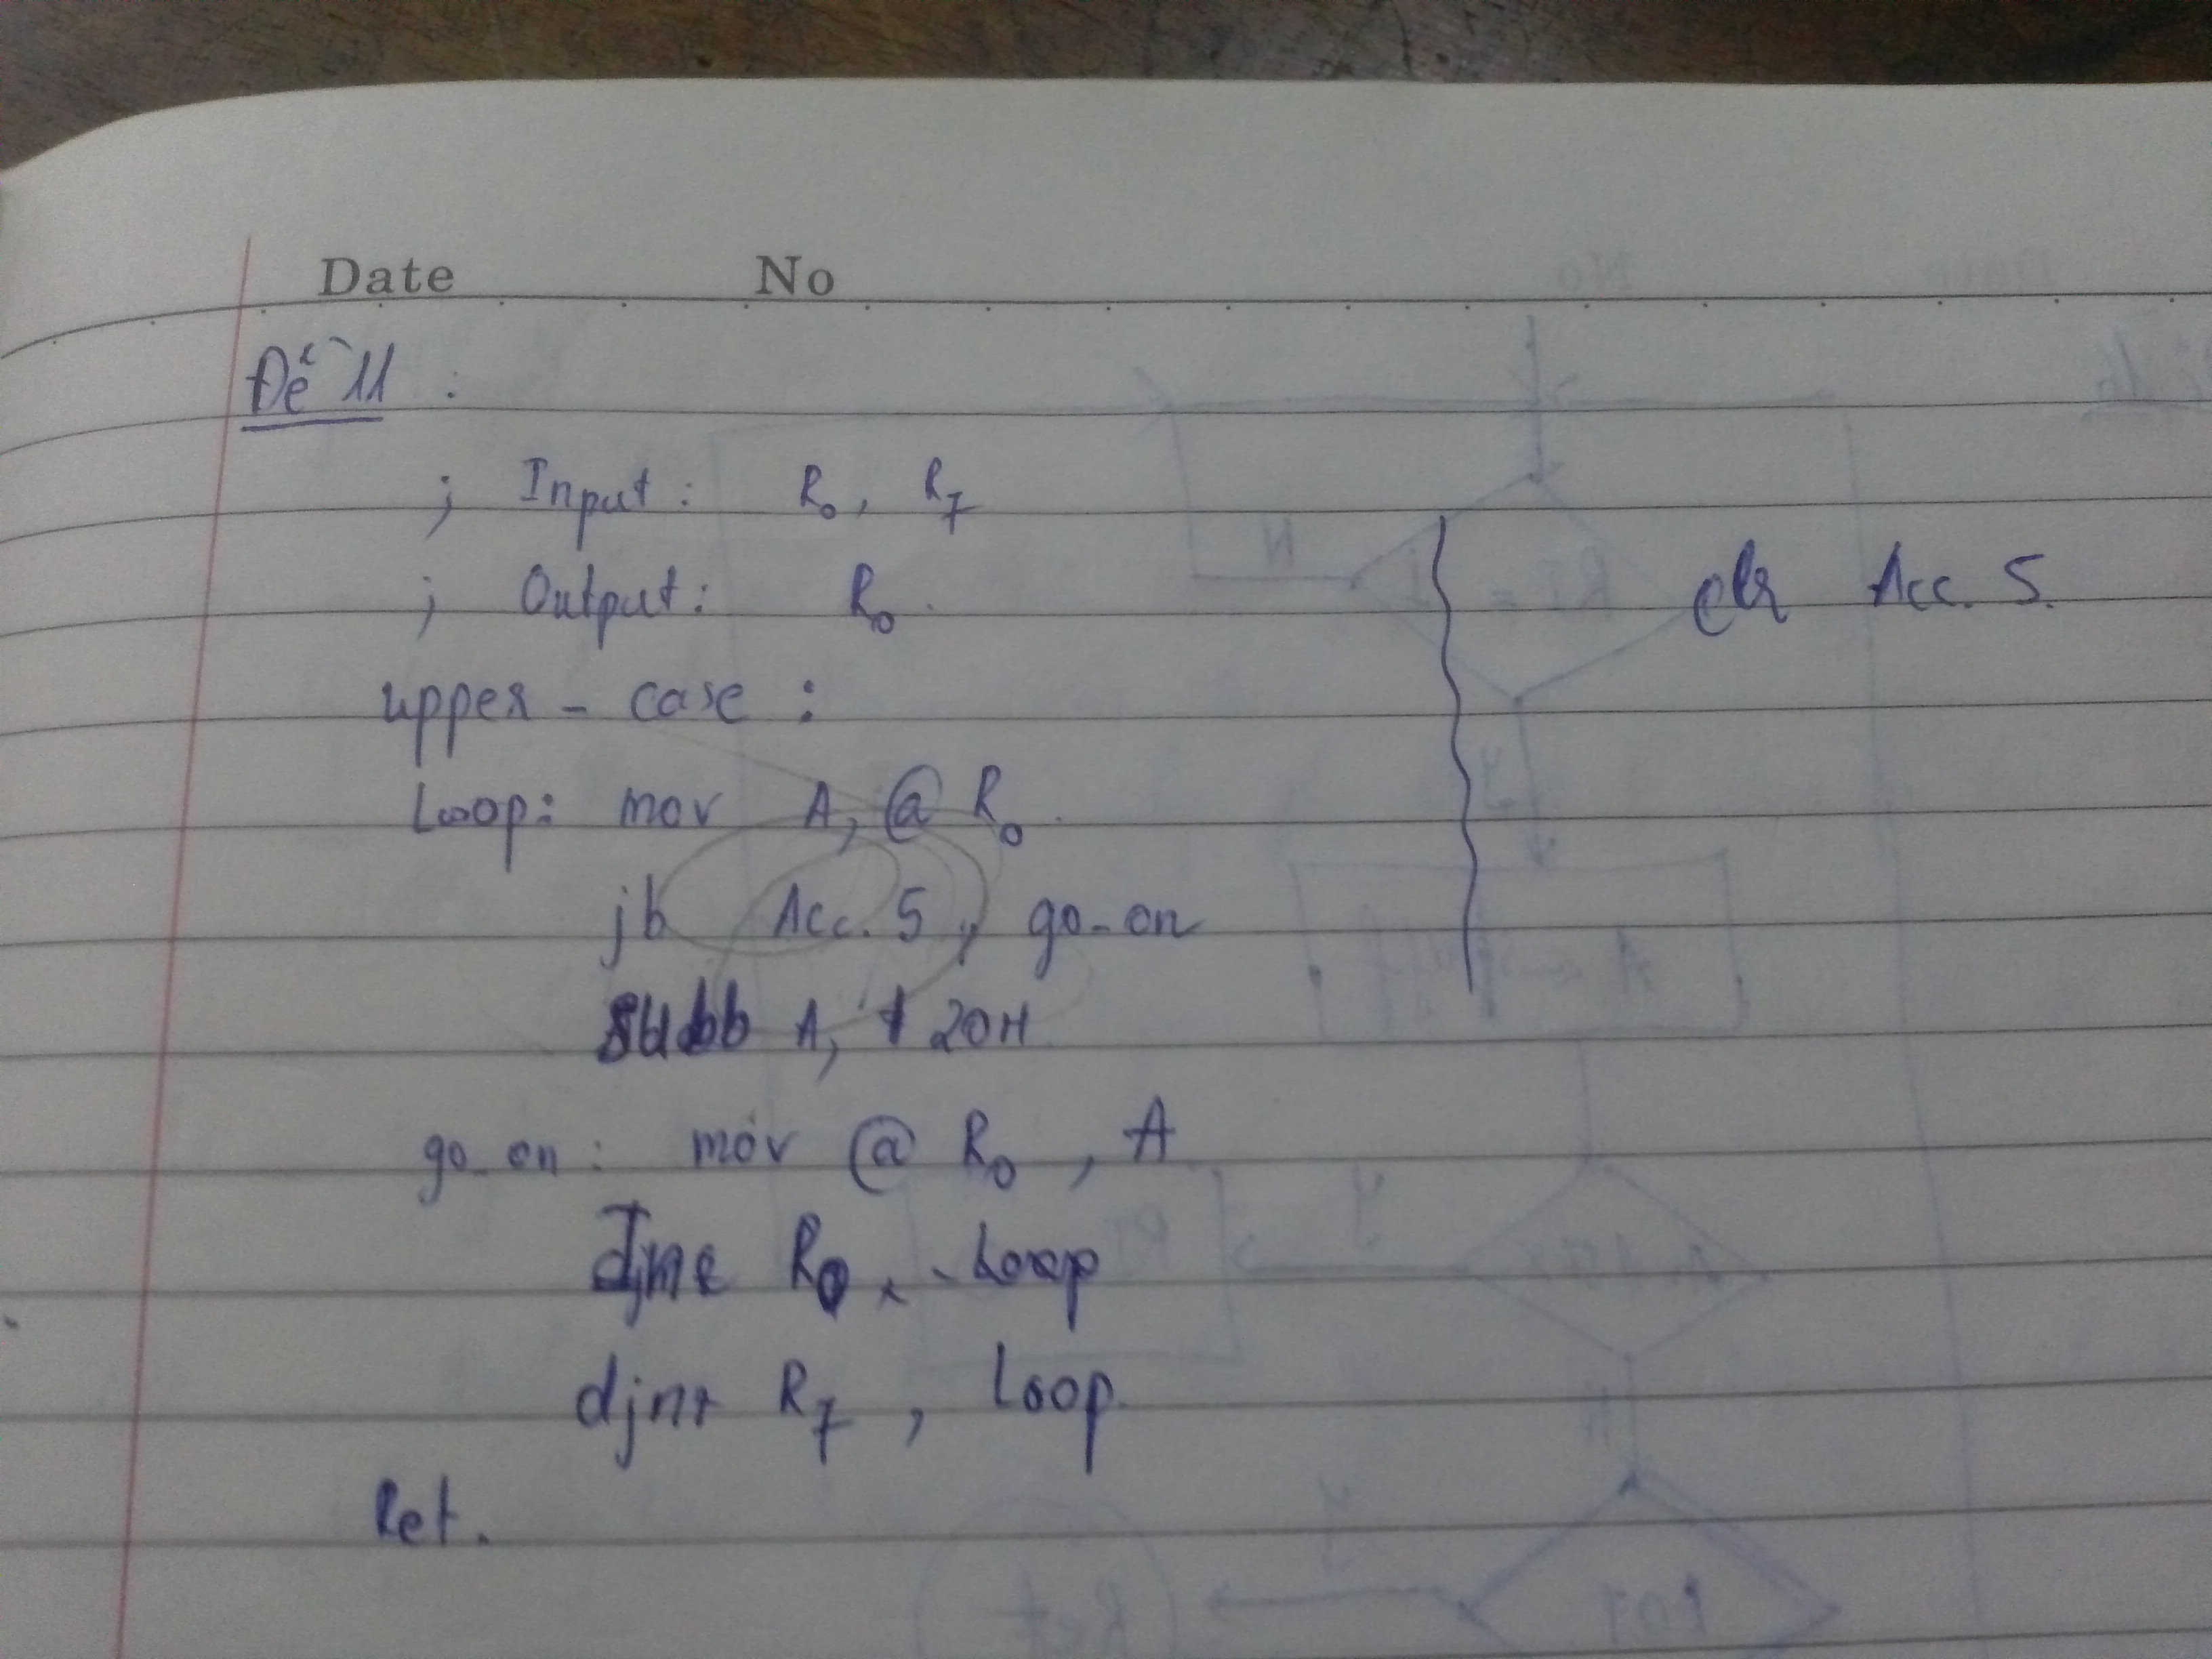 Date No
Đề 11 :
; Input: R0, R7
; Output: R0.
upper - case :
Loop: mov A, @ R0.
jb Acc. 5, go-on
subb A, 20H
go-on : mov @ R0, A
R0, Loop
djnz R7, Loop.
Ret.
clr Acc. 5.